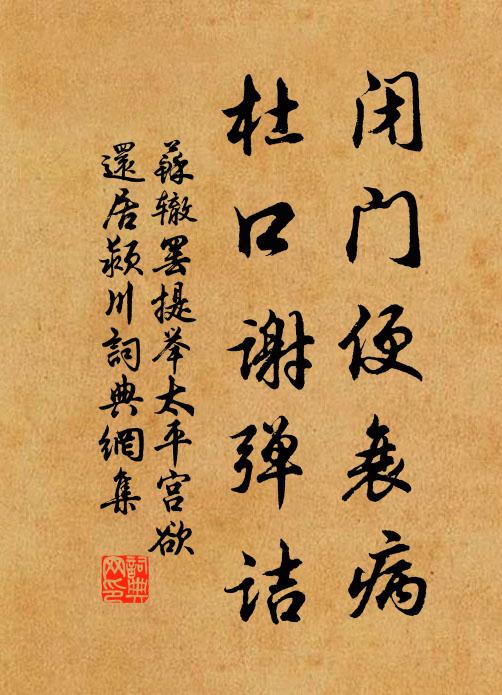 闭门便衰病
杜口谢弹诘
蘇辙罢提举太平宫欲
還居颍川詞典網集
詞典
网印